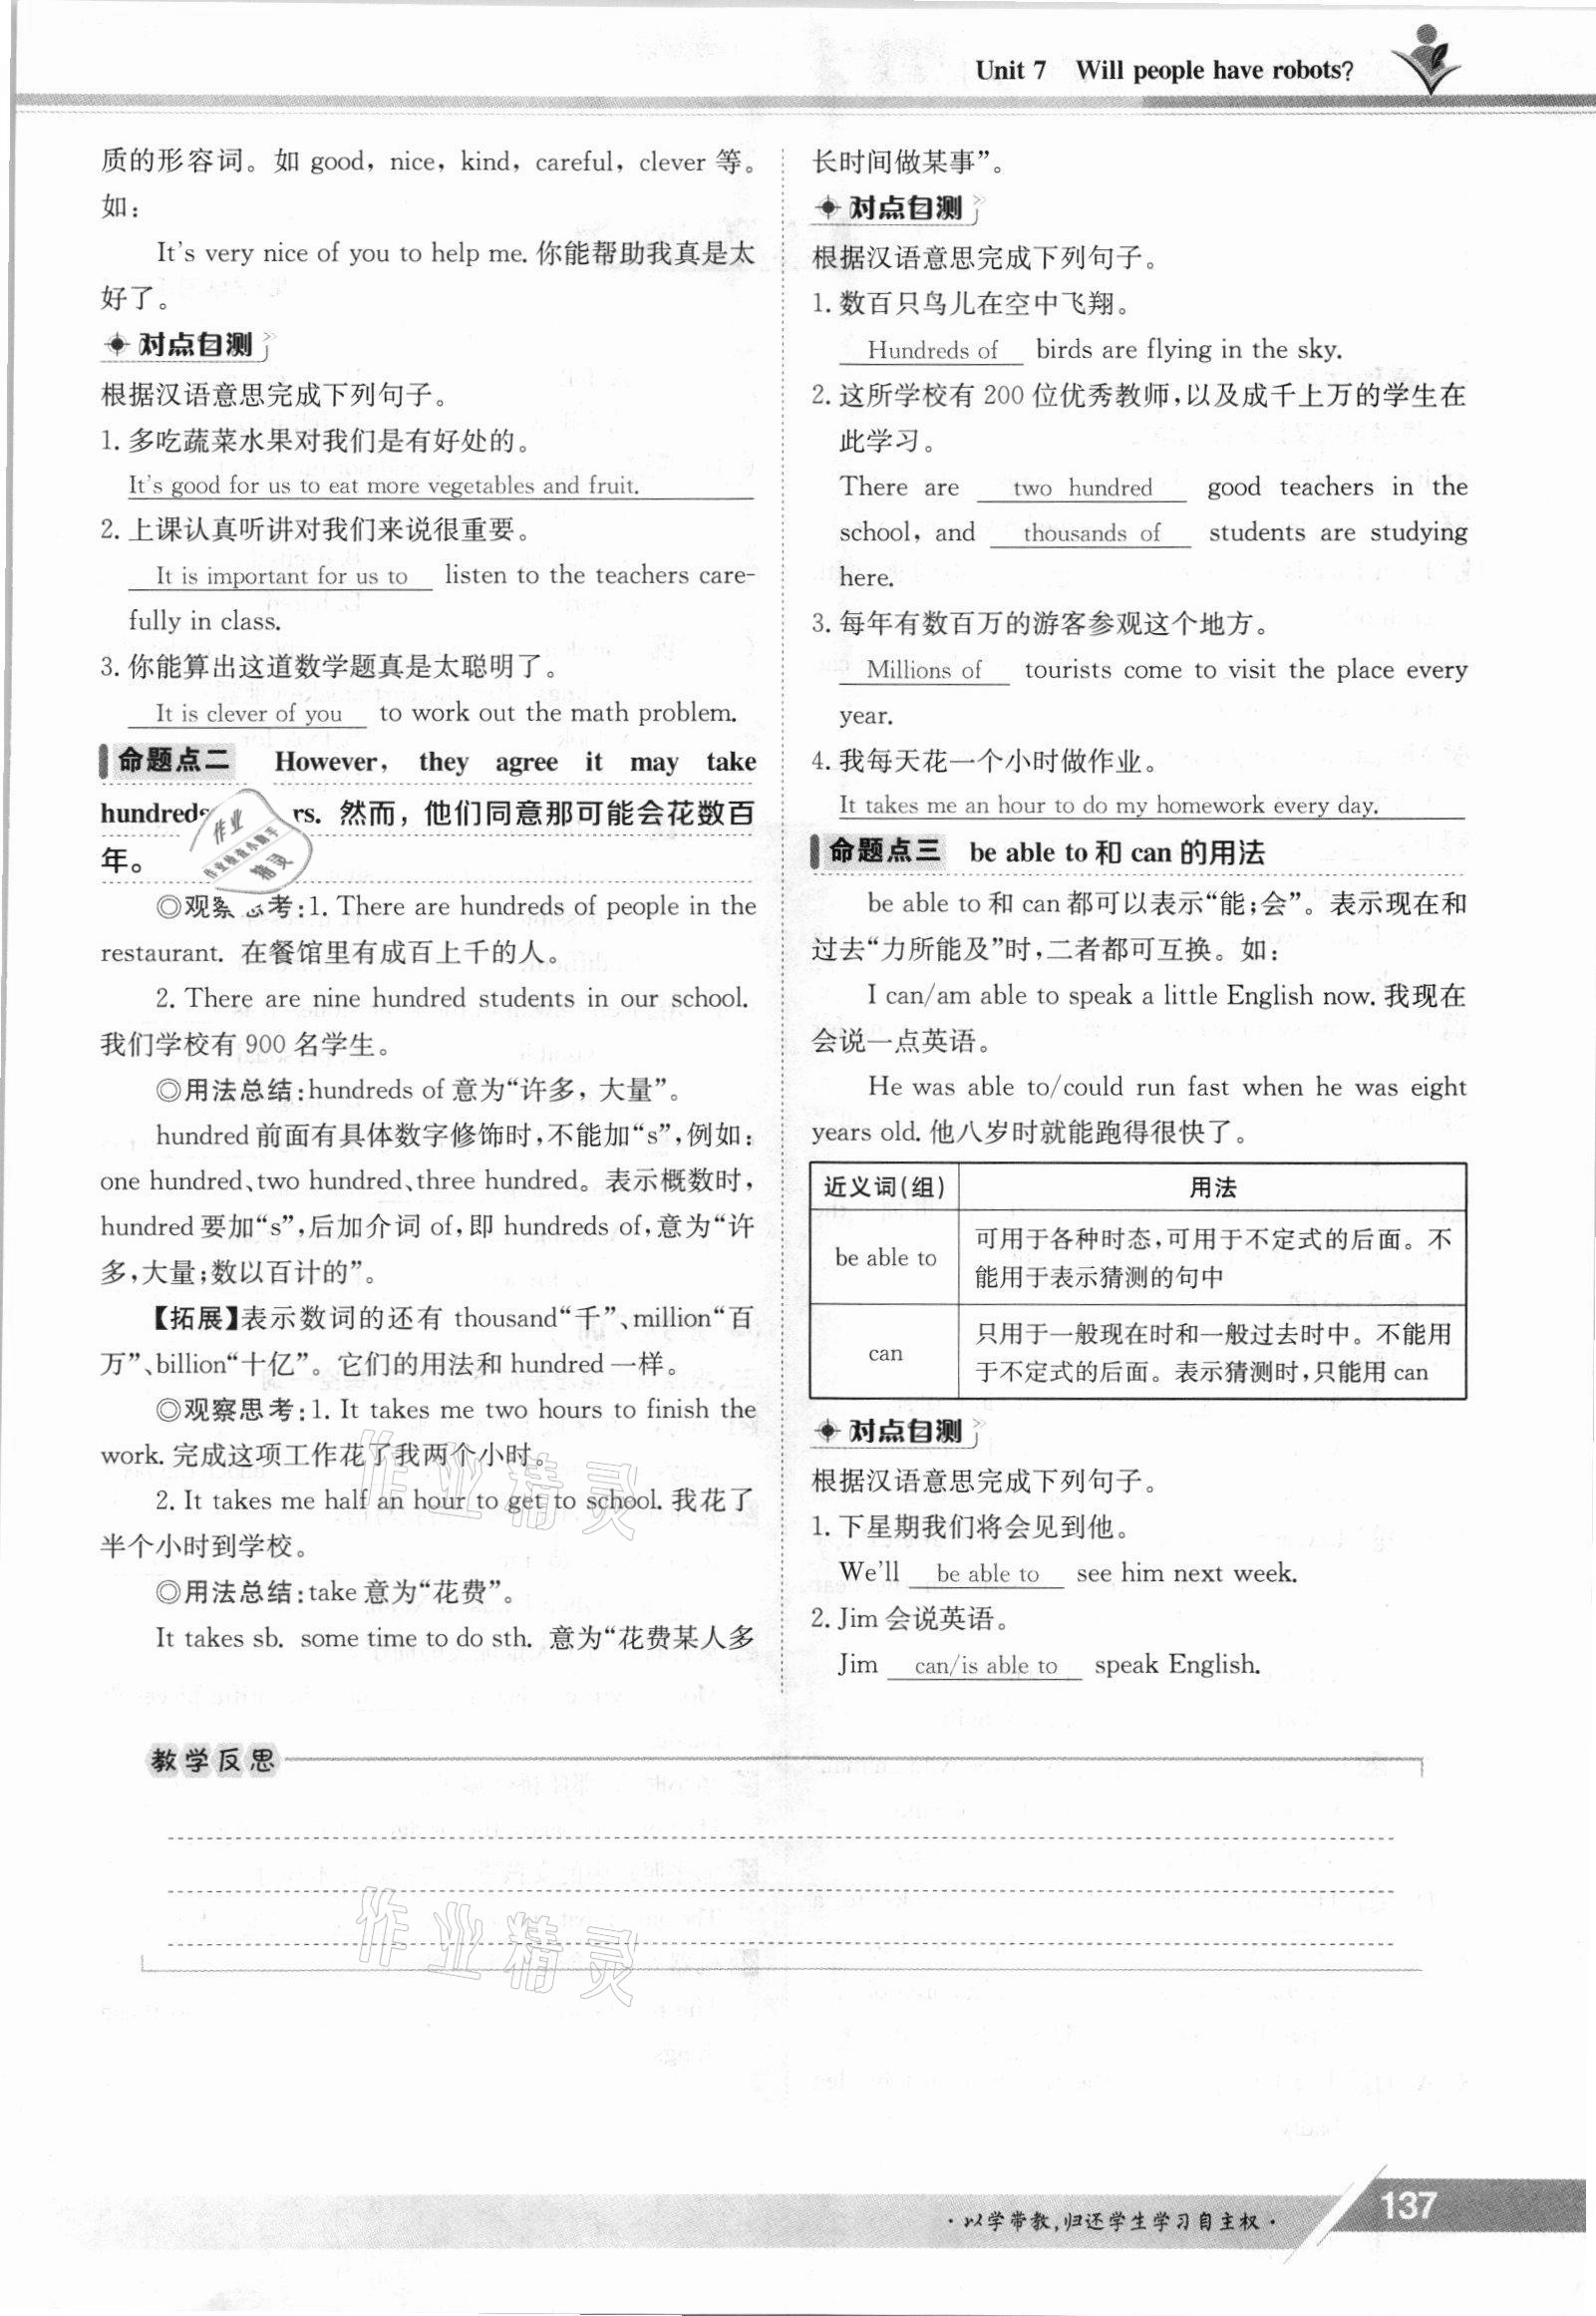 Unit 7 Will people have robots?
质的形容词。如 good, nice, kind, careful, clever 等。
如:
It's very nice of you to help me. 你能帮助我真是太
好了。
对点自测
根据汉语意思完成下列句子。
1. 多吃蔬菜水果对我们是有好处的。
It's good for us to eat more vegetables and fruit.
2. 上课认真听讲对我们来说很重要。
It is important for us to listen to the teachers care-
fully in class.
3. 你能算出这道数学题真是太聪明了。
It is clever of you to work out the math problem.
命题点二 However, they agree it may take
hundreds rs. 然而，他们同意那可能会花数百
年。
◎观察思考:1. There are hundreds of people in the
restaurant. 在餐馆里有成百上千的人。
2. There are nine hundred students in our school.
我们学校有 900 名学生。
◎用法总结:hundreds of 意为“许多，大量”。
hundred 前面有具体数字修饰时,不能加“s”,例如:
one hundred、two hundred、three hundred。表示概数时,
hundred 要加“s”,后加介词 of,即 hundreds of,意为“许
多,大量;数以百计的”。
【拓展】表示数词的还有 thousand“千”、million“百
万”、billion“十亿”。它们的用法和 hundred 一样。
◎观察思考:1. It takes me two hours to finish the
work. 完成这项工作花了我两个小时。
2. It takes me half an hour to get to school. 我花了
半个小时到学校。
◎用法总结:take 意为“花费”。
It takes sb. some time to do sth. 意为“花费某人多
长时间做某事”。
对点自测
根据汉语意思完成下列句子。
1. 数百只鸟儿在空中飞翔。
Hundreds of birds are flying in the sky.
2. 这所学校有 200 位优秀教师,以及成千上万的学生在
此学习。
There are two hundred good teachers in the
school, and thousands of students are studying
here.
3. 每年有数百万的游客参观这个地方。
Millions of tourists come to visit the place every
year.
4. 我每天花一个小时做作业。
It takes me an hour to do my homework every day.
命题点三 be able to 和 can 的用法
be able to 和 can 都可以表示“能;会”。表示现在和
过去“力所能及”时,二者都可互换。如:
I can/am able to speak a little English now. 我现在
会说一点英语。
He was able to/could run fast when he was eight
years old. 他八岁时就能跑得很快了。
近义词(组) 用法
be able to 可用于各种时态,可用于不定式的后面。不
能用于表示猜测的句中
can 只用于一般现在时和一般过去时中。不能用
于不定式的后面。表示猜测时,只能用 can
对点自测
根据汉语意思完成下列句子。
1. 下星期我们将会见到他。
We'll be able to see him next week.
2. Jim 会说英语。
Jim can/is able to speak English.
教学反思
作业精灵
作业精灵
·以学带教,归还学生学习自主权·
137